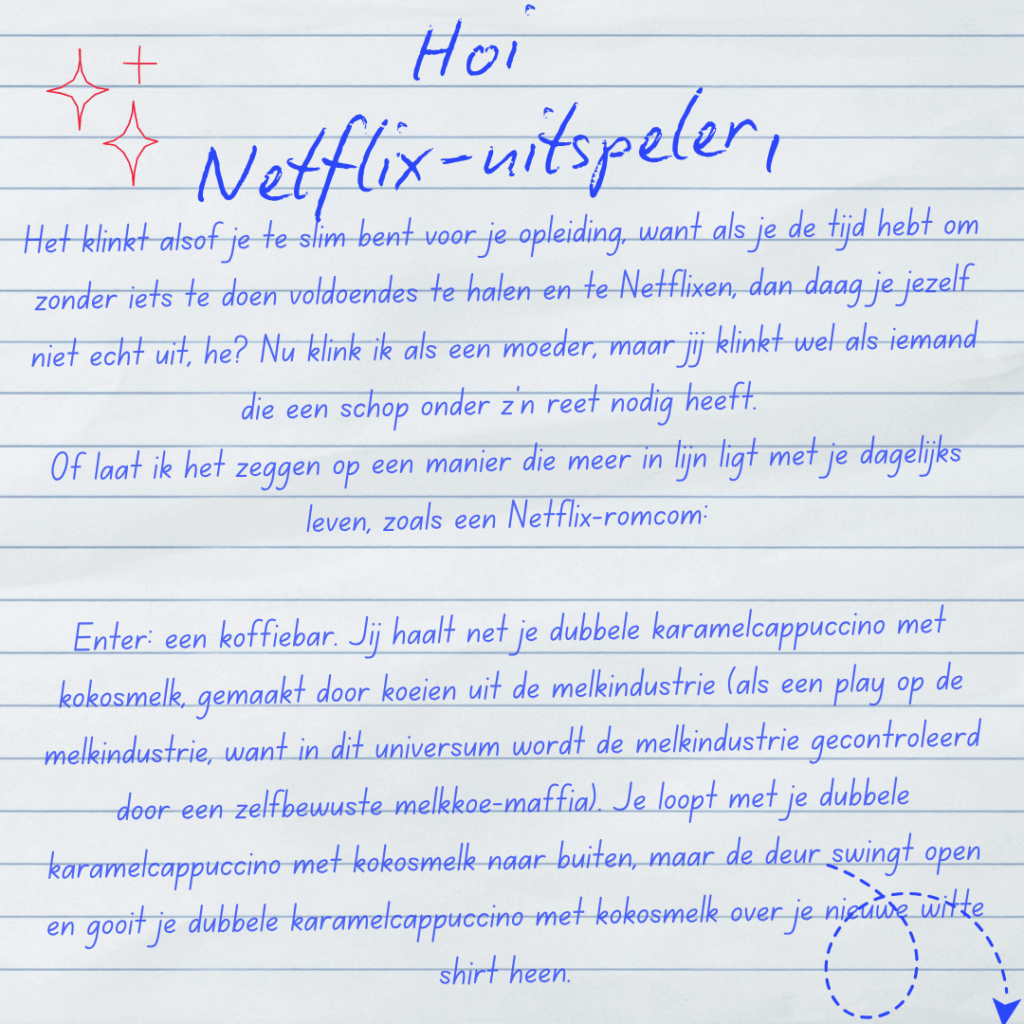 Hoi
Netflix-uitspeler,
Het klinkt alsof je te slim bent voor je opleiding, want als je de tijd hebt om
zonder iets te doen voldoendes te halen en te Netflixen, dan daag je jezelf
niet echt uit, he? Nu klink ik als een moeder, maar jij klinkt wel als iemand
die een schop onder z'n reet nodig heeft.
Of laat ik het zeggen op een manier die meer in lijn ligt met je dagelijks
leven, zoals een Netflix-romcom:
Enter: een koffiebar. Jij haalt net je dubbele karamelcappuccino met
kokosmelk, gemaakt door koeien uit de melkindustrie (als een play op de
melkindustrie, want in dit universum wordt de melkindustrie gecontroleerd
door een zelfbewuste melkkoe-maffia). Je loopt met je dubbele
karamelcappuccino met kokosmelk naar buiten, maar de deur swingt open
en gooit je dubbele karamelcappuccino met kokosmelk over je nieuwe witte
shirt heen.